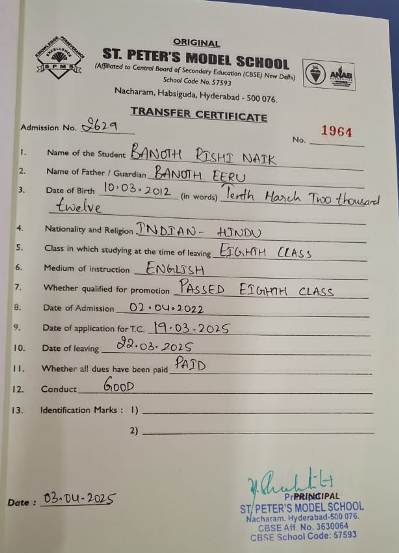 ORIGINAL
ST. PETER'S MODEL SCHOOL
(Affiliated to Central Board of Secondary Education (CBSE) New Delhi)
School Code No.57593
Nacharam, Habsiguda, Hyderabad - 500 076.
S P M S
ANAB
TRANSFER CERTIFICATE
Admission No. 2629
No. 1964
1. Name of the Student BANOTH RISHI NAIK
2. Name of Father / Guardian BANOTH EERU
3. Date of Birth 10.03.2012 (in words) Tenth March Two thousand
twelve
4. Nationality and Religion INDIAN - HINDU
5. Class in which studying at the time of leaving EIGHTH CLASS
6. Medium of instruction ENGLISH
7. Whether qualified for promotion PASSED EIGHTH CLASS
8. Date of Admission 02.04.2022
9. Date of application for T.C. 19.03-2025
10. Date of leaving 22.03.2025
11. Whether all dues have been paid PAID
12. Conduct GOOD
13. Identification Marks : 1)
2)
Date : 03.04-2025
PRINCIPAL
ST. PETER'S MODEL SCHOOL
Nacharam, Hyderabad-500 076.
CBSE Aff. No. 3630064
CBSE School Code: 57593